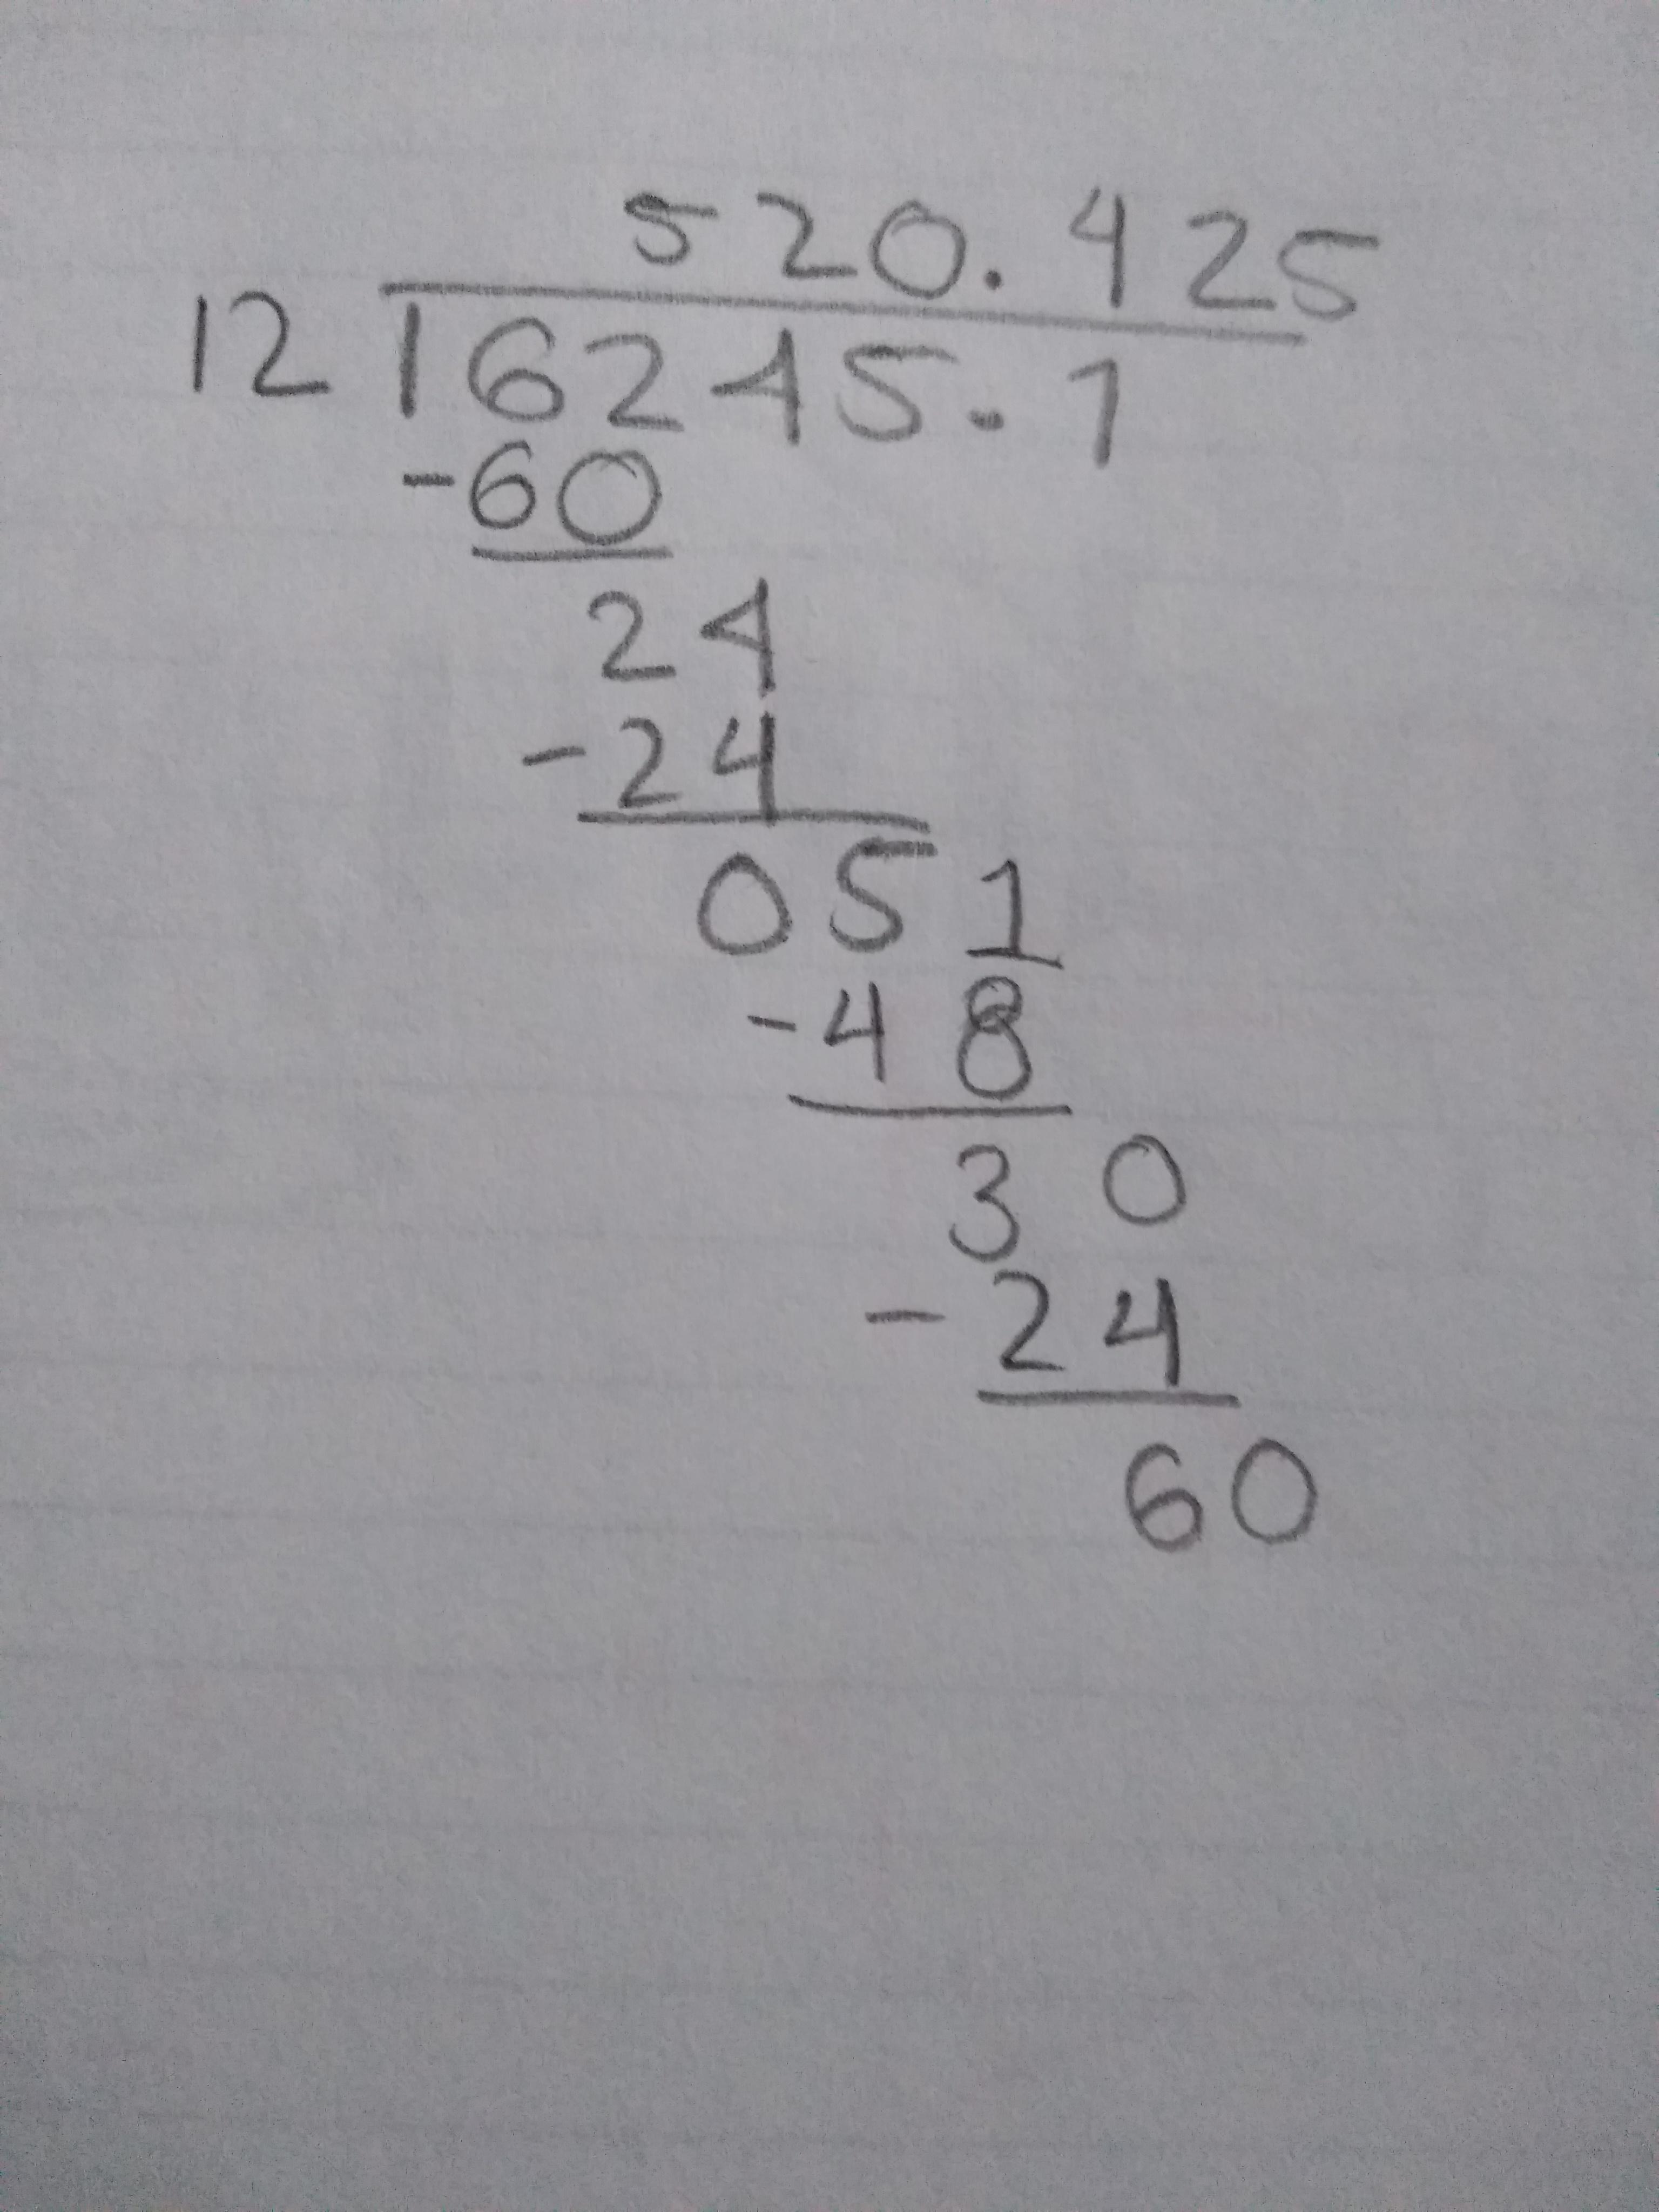 520.425
12 6245.1
-60
24
-24
051
-48
30
-24
60